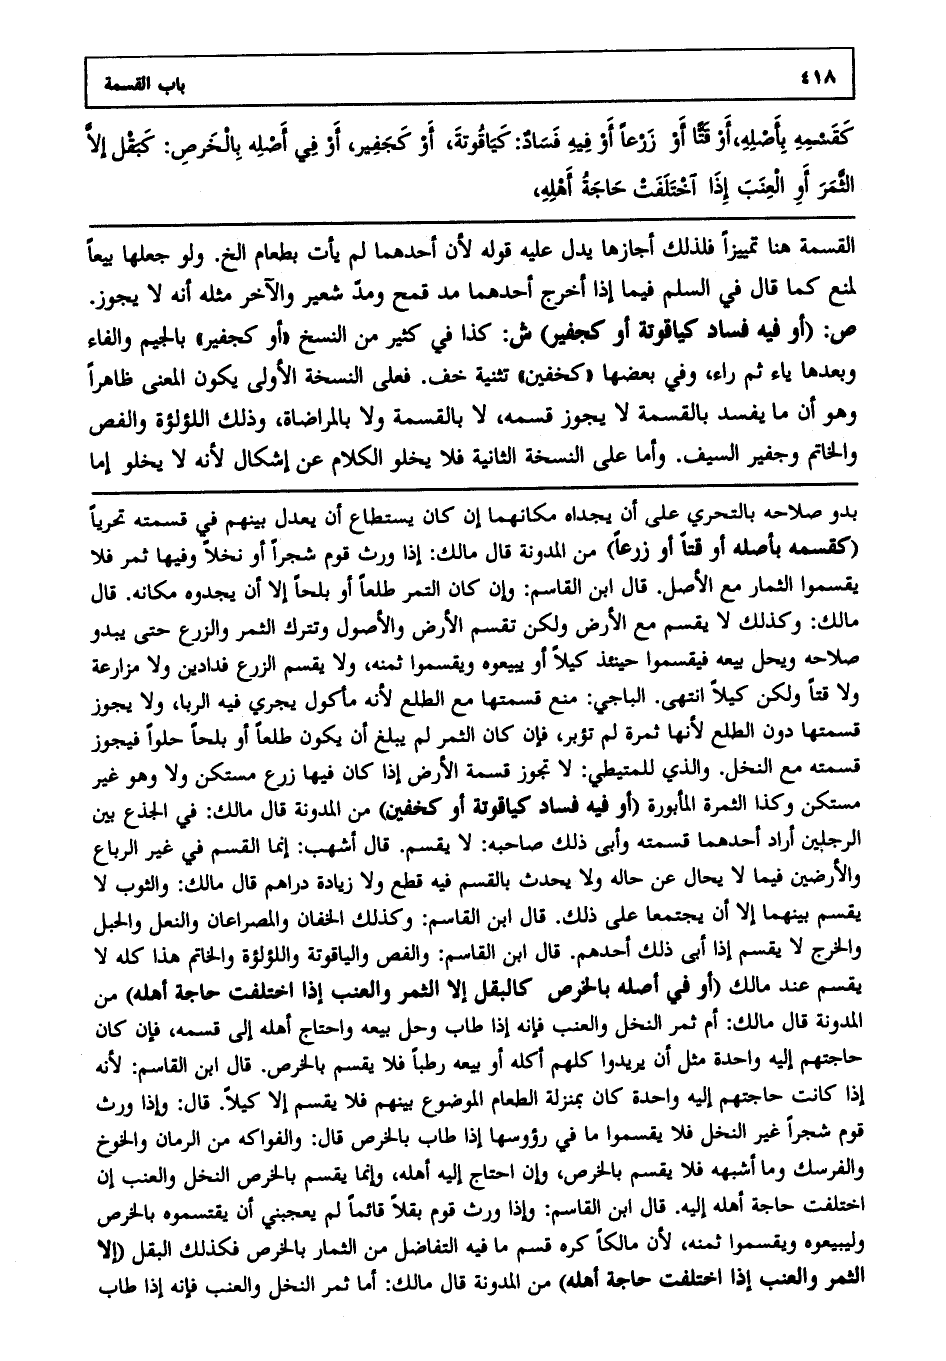 ٤١٨ باب القسمة
كَقَسْمِهِ بِأَصْلِهِ، أَوْ قَتًّا أَوْ زَرْعاً أَوْ فِيهِ فَسَادٌ: كَيَاقُوتَةَ، أَوْ كَجَفِير، أَوْ فِي أَصْلِه بِالْخَرصِ: كَبَقْل إلاَّ
الثَّمَرَ أَوِ الْعِنَبَ إِذَا آخْتَلَفَتْ حَاجَةُ أَهْلِهِ،
القسمة هنا تمييزاً فلذلك أجازها يدل عليه قوله لأن أحدهما لم يأت بطعام الخ. ولو جعلها بيعاً
لمنع كما قال في السلم فيما إذا أخرج أحدهما مد قمح ومدّ شعير والآخر مثله أنه لا يجوز.
ص: (أو فيه فساد كياقوتة أو كجفير) ش: كذا في كثير من النسخ «أو كجفير» بالجيم والفاء
وبعدها ياء ثم راء، وفي بعضها «كخفين» تثنية خف. فعلى النسخة الأولى يكون المعنى ظاهراً
وهو أن ما يفسد بالقسمة لا يجوز قسمه، لا بالقسمة ولا بالمراضاة، وذلك اللؤلؤة والفص
والخاتم وجفير السيف. وأما على النسخة الثانية فلا يخلو الكلام عن إشكال لأنه لا يخلو إما
بدو صلاحه بالتحري على أن يجداه مكانهما إن كان يستطاع أن يعدل بينهم في قسمته تحرياً
(كقسمه بأصله أو قتاً أو زرعاً) من المدونة قال مالك: إذا ورث قوم شجراً أو نخلاً وفيها ثمر فلا
يقسموا الثمار مع الأصل. قال ابن القاسم: وإن كان التمر طلعاً أو بلحاً إلا أن يجدوه مكانه. قال
مالك: وكذلك لا يقسم مع الأرض ولكن تقسم الأرض والأصول وتترك الثمر والزرع حتى يبدو
صلاحه ويحل بيعه فيقسموا حينئذ كيلاً أو يبيعوه ويقسموا ثمنه، ولا يقسم الزرع فدادين ولا مزارعة
ولا قتاً ولكن كيلاً انتهى. الباجي: منع قسمتها مع الطلع لأنه مأكول يجري فيه الربا، ولا يجوز
قسمتها دون الطلع لأنها ثمرة لم تؤبر، فإن كان الثمر لم يبلغ أن يكون طلعاً أو بلحاً حلواً فيجوز
قسمته مع النخل. والذي للمتيطي: لا تجوز قسمة الأرض إذا كان فيها زرع مستكن ولا وهو غير
مستكن وكذا الثمرة المأبورة (أو فيه فساد كياقوتة أو كخفين) من المدونة قال مالك: في الجذع بين
الرجلين أراد أحدهما قسمته وأبى ذلك صاحبه: لا يقسم. قال أشهب: إنما القسم في غير الرباع
والأرضين فيما لا يحال عن حاله ولا يحدث بالقسم فيه قطع ولا زيادة دراهم قال مالك: والثوب لا
يقسم بينهما إلا أن يجتمعا على ذلك. قال ابن القاسم: وكذلك الخفان والمصراعان والنعل والحبل
والخرج لا يقسم إذا أبى ذلك أحدهم. قال ابن القاسم: والفص والياقوتة واللؤلؤة والخاتم هذا كله لا
يقسم عند مالك (أو في أصله بالخرص كالبقل إلا الثمر والعنب إذا اختلفت حاجة أهله) من
المدونة قال مالك: أم ثمر النخل والعنب فإنه إذا طاب وحل بيعه واحتاج أهله إلى قسمه، فإن كان
حاجتهم إليه واحدة مثل أن يريدوا كلهم أكله أو بيعه رطباً فلا يقسم بالخرص. قال ابن القاسم: لأنه
إذا كانت حاجتهم إليه واحدة كان بمنزلة الطعام الموضوع بينهم فلا يقسم إلا كيلاً. قال: وإذا ورث
قوم شجراً غير النخل فلا يقسموا ما في رؤوسها إذا طاب بالخرص قال: والفواكه من الرمان والخوخ
والفرسك وما أشبهه فلا يقسم بالخرص، وإن احتاج إليه أهله، وإنما يقسم بالخرص النخل والعنب إن
اختلفت حاجة أهله إليه. قال ابن القاسم: وإذا ورث قوم بقلاً قائماً لم يعجبني أن يقتسموه بالخرص
وليبيعوه ويقسموا ثمنه، لأن مالكاً كره قسم ما فيه التفاضل من الثمار بالخرص فكذلك البقل (إلا
الثمر والعنب إذا اختلفت حاجة أهله) من المدونة قال مالك: أما ثمر النخل والعنب فإنه إذا طاب